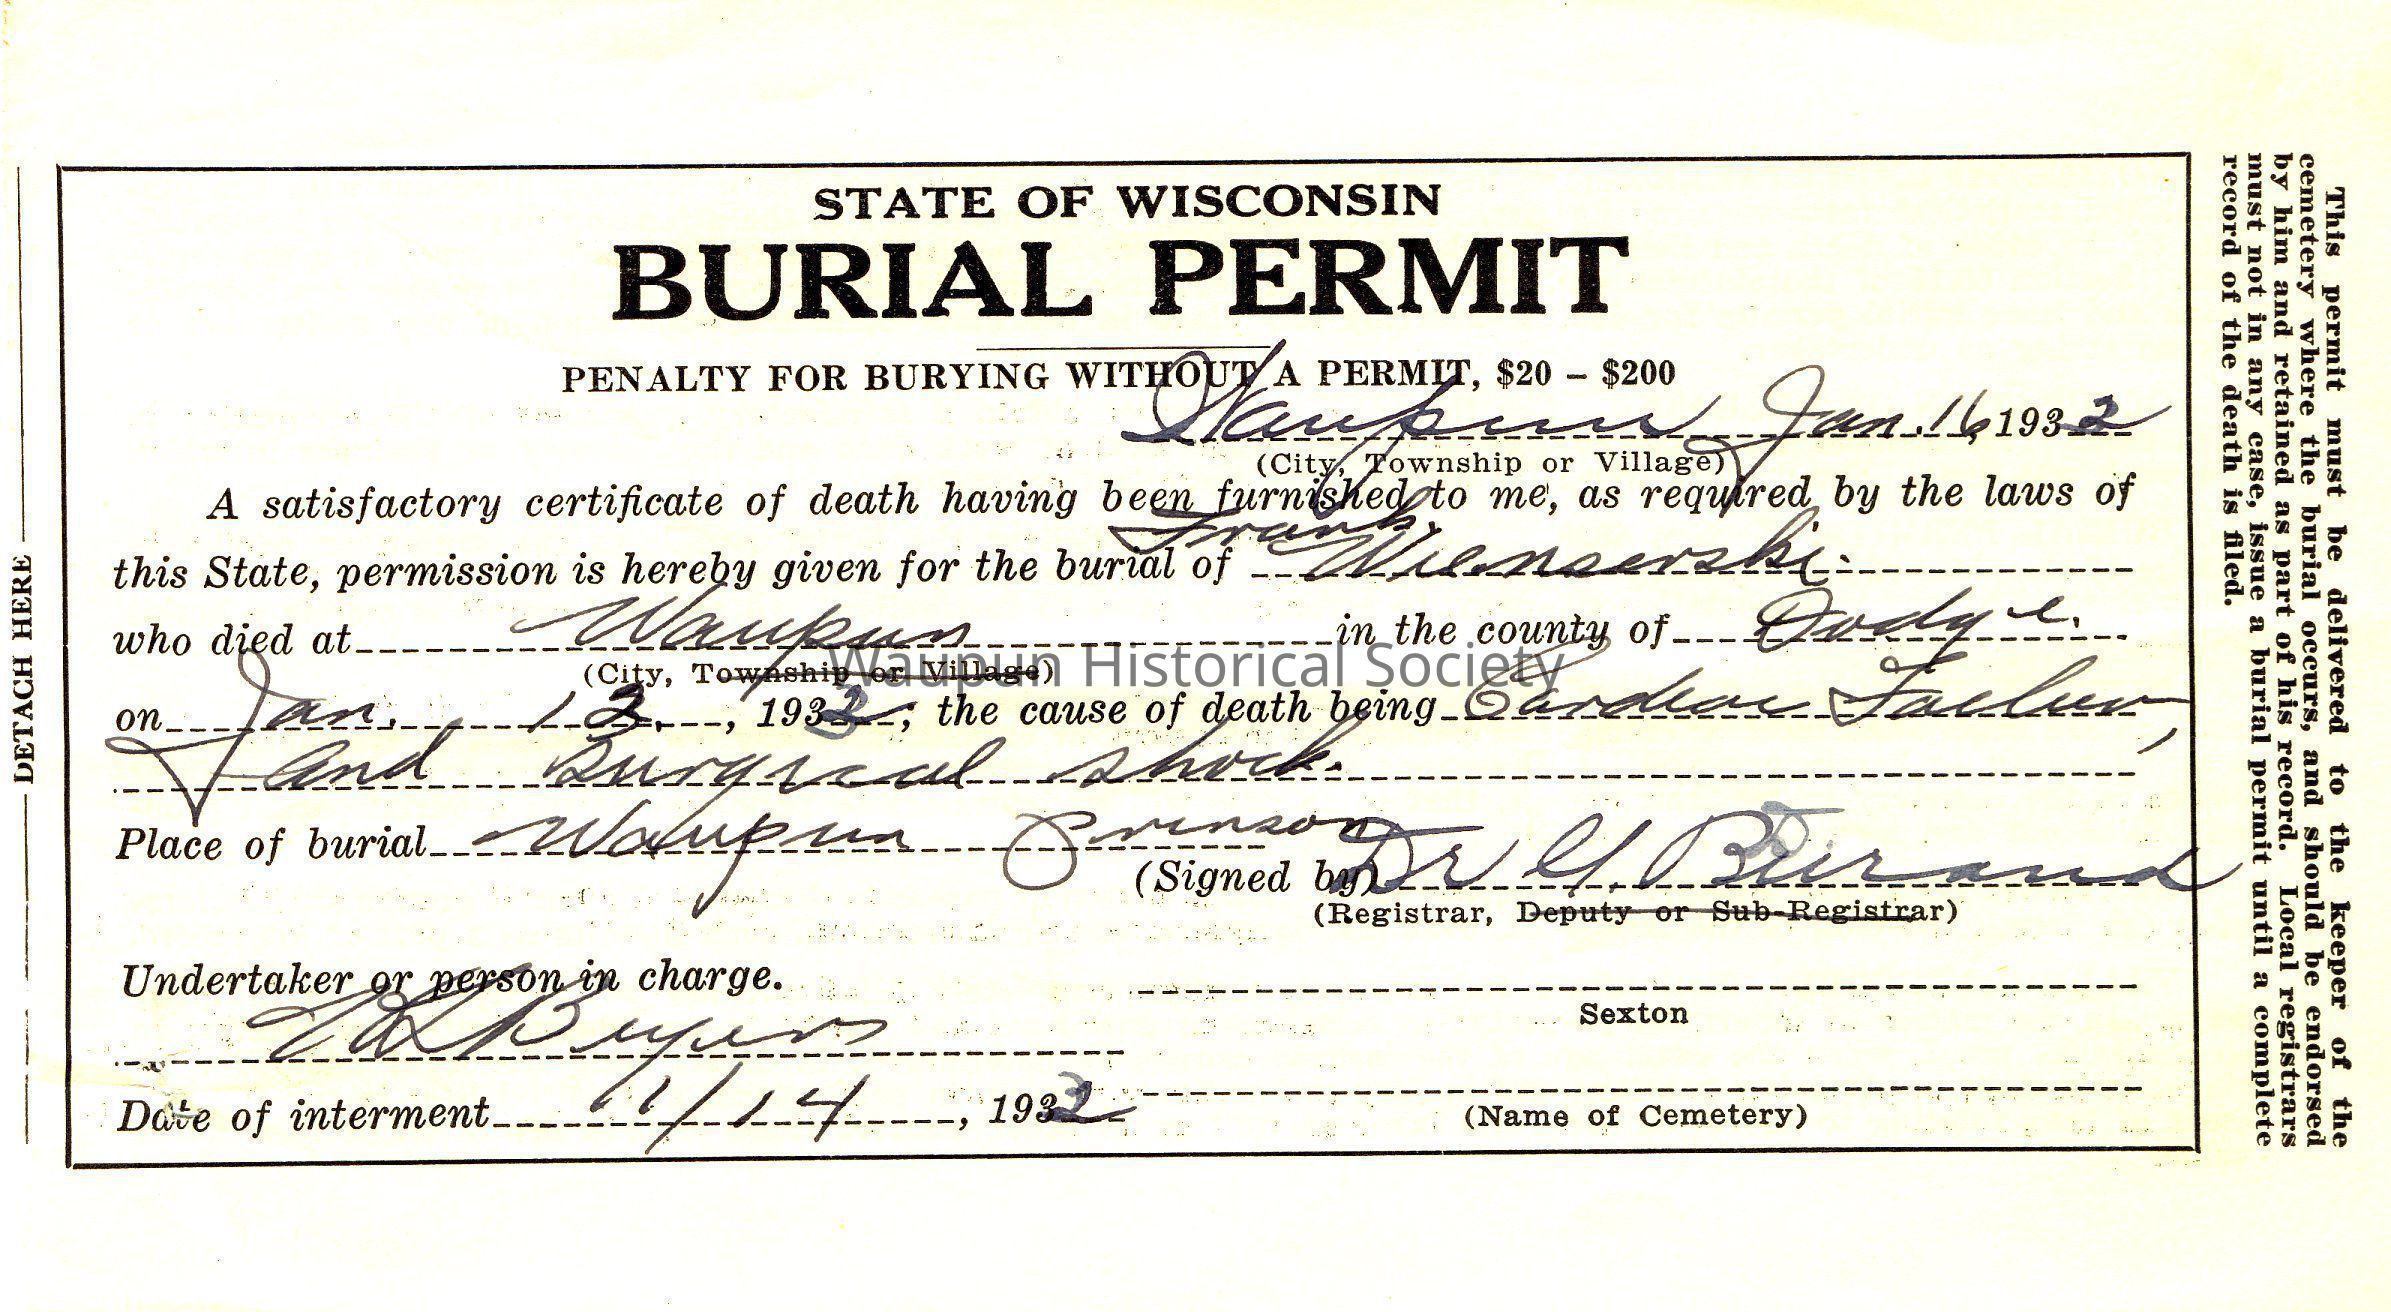 STATE OF WISCONSIN
BURIAL PERMIT
PENALTY FOR BURYING WITHOUT A PERMIT, $20 – $200
Waupun Jan. 16, 1932
(City, Township or Village)
A satisfactory certificate of death having been furnished to me, as required by the laws of
Frank
this State, permission is hereby given for the burial of
who died at Waupun in the county of Dodge.
(City, Township or Village)
on Jan. 13, 1932; the cause of death being Cardiac Failure,
and Surgical shock.
Place of burial Waupun Prinson
(Signed by) Dr G. Burand
(Registrar, Deputy or Sub-Registrar)
Undertaker or person in charge.
Byers
Sexton
Date of interment 1/14, 1932
(Name of Cemetery)
DETACH HERE
This permit must be delivered to the keeper of the
cemetery where the burial occurs, and should be endorsed
by him and retained as part of his record. Local registrars
must not in any case, issue a burial permit until a complete
record of the death is filed.
Waupun Historical Society